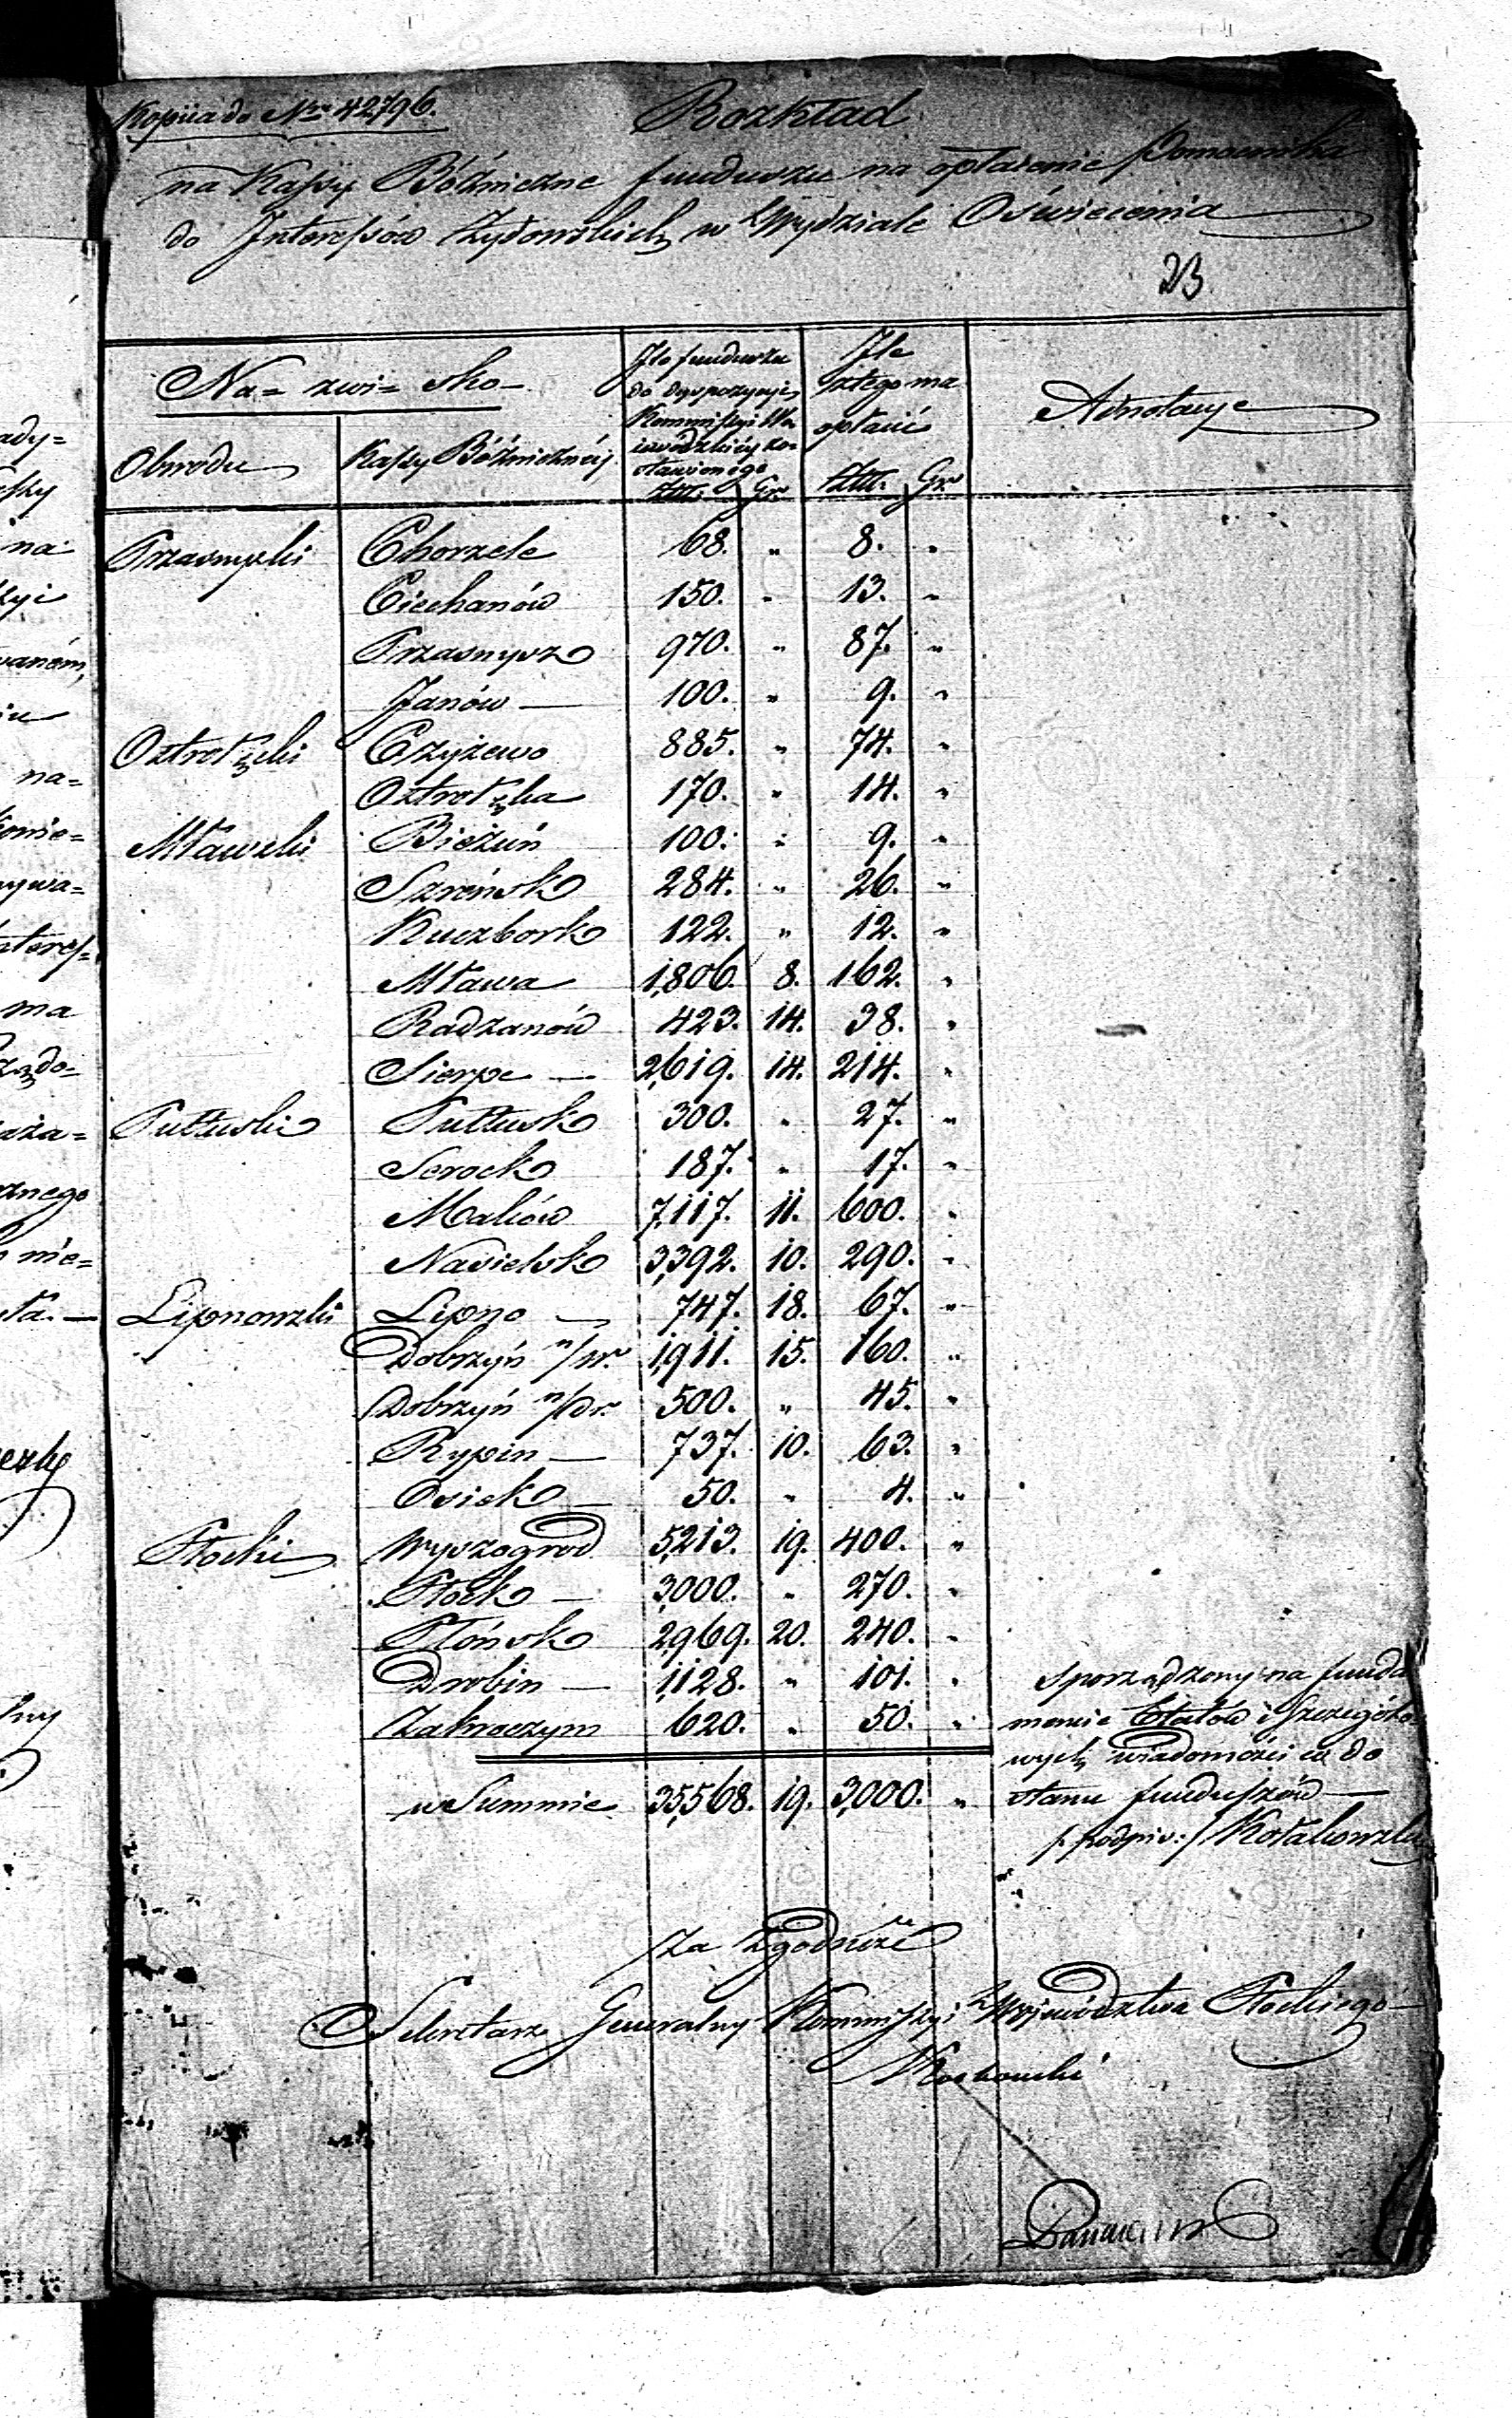 Kopiia do Nru 42796.
Rozkład
na Kassy Bóżnicze funduszu na opłacenie Pomocnika
do Interessów Żydowskich w Wydziale Oświecenia
23
Na- zwi- sko-
Obwodu
Kassy Bóżniczney
Ile funduszu
do dyspozycyi
Kommissyi Wo
iewódzkiéy zo-
stawionego
Złł. Gr.
Ile
z tego ma
opłacić
Złł. Gr.
Adnotacye
Przasnyski Chorzele 68. „ 8. „
Ciechanów 150. „ 13. „
Przasnysz 970. „ 87. „
Janów — 100. „ 9. „
Ostrołęcki Czyżewo 885. „ 74. „
Ostrołęka 170. „ 14. „
Mławski Bieżuń 100. „ 9. „
Szreńsk 284. „ 26. „
Kuczbork 122. „ 12. „
Mława 1,806. 8. 162. „
Radzanów 423. 14. 38. „
Sierpc — 2,619. 14. 214. „
Pułtuski Pułtusk 300. „ 27. „
Serock 187. „ 17. „
Maków 7,117. 11. 600. „
Nasielsk 3,392. 10. 290. „
Lipnowski Lipno — 747. 18. 67. „
Dobrzyń n/W. 1,911. 15. 160. „
Dobrzyń n/Dr. 500. „ 45. „
Rypin — 737. 10. 63. „
Osiek — 50. „ 4. „
Płocki Wyszogrod 5,213. 19. 400. „
Płock — 3,000. „ 270. „
Płońsk 2,969. 20. 240. „
Drobin — 1,128. „ 101. „
Zakroczym 620. „ 50. „
w Summie 35,568. 19. 3,000. „
Sporządzony na funda
mencie Etatów i Szczegóło
wych wiadomości co do
stanu funduszów —
/:podpis:/ Kołakowski
Za Zgodność
Sekretarz Generalny Kommissyi Województwa Płockiego